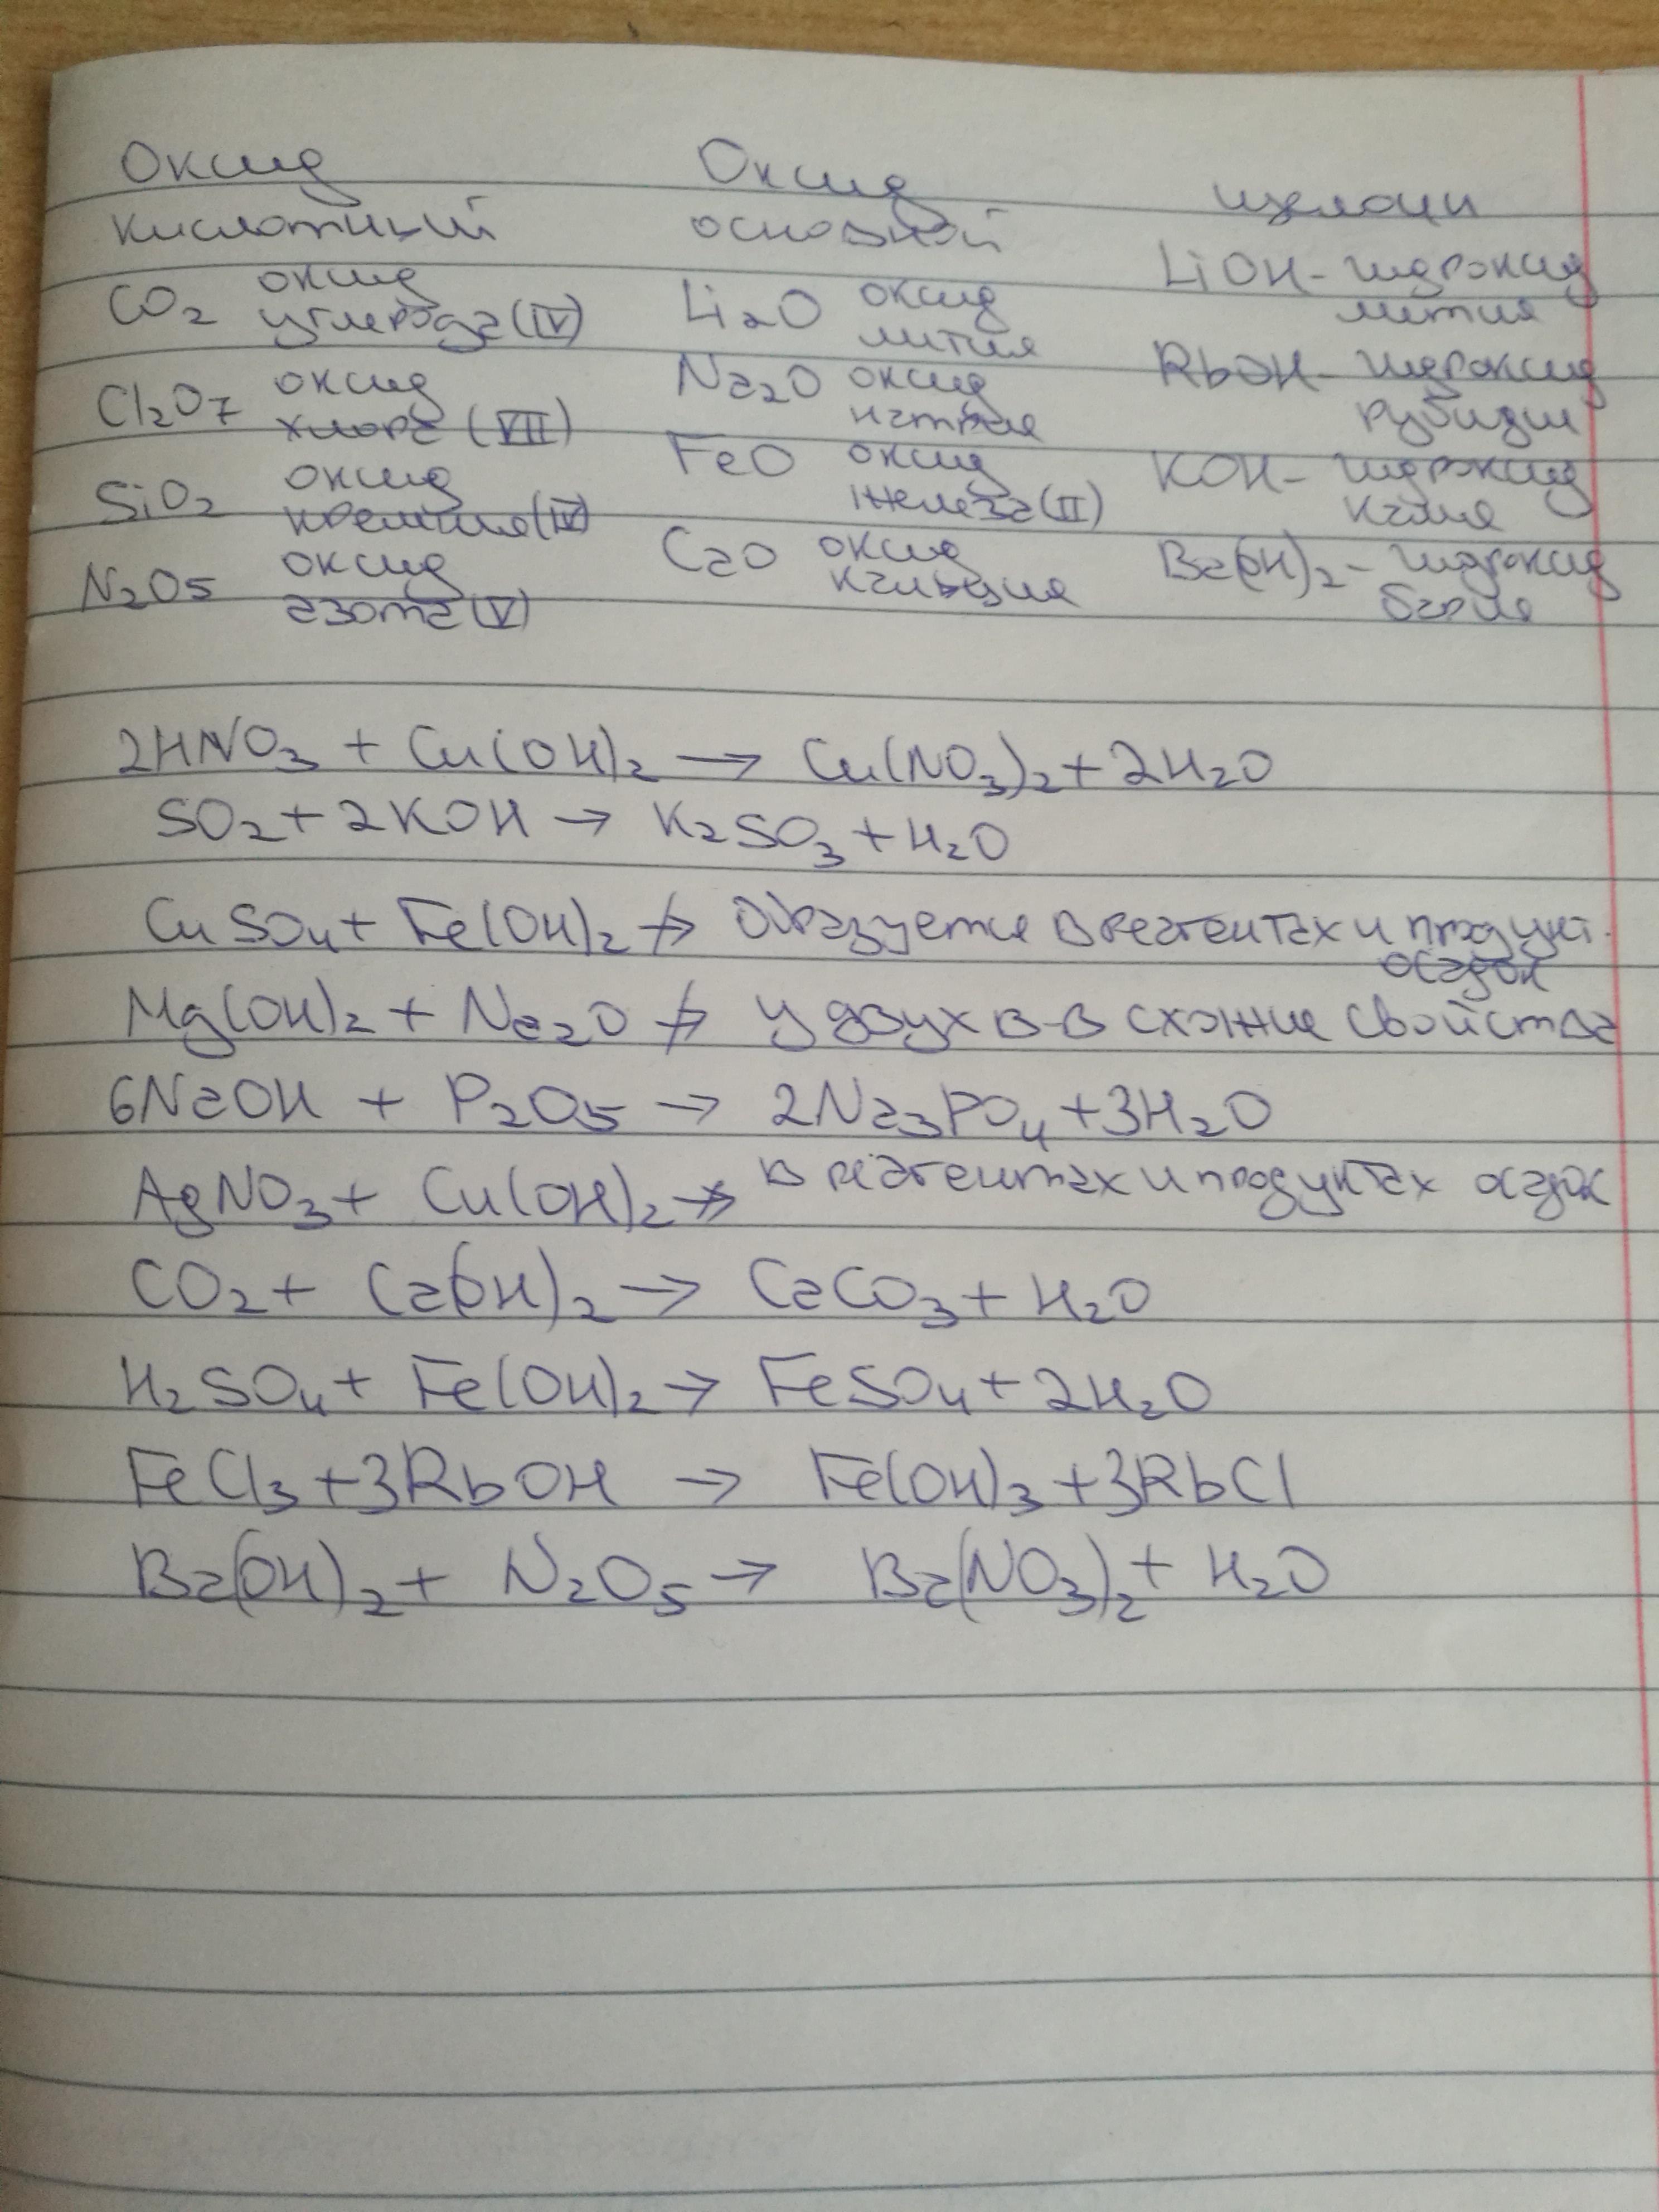 Оксид Оксид щелочи
кислотный основной
CO₂ оксид углерода (IV) Li₂O оксид лития LiOH - гидроксид лития
Cl₂O₇ оксид хлора (VII) Na₂O оксид натрия RbOH - гидроксид рубидия
SiO₂ оксид кремния (IV) FeO оксид железа (II) KOH - гидроксид калия
N₂O₅ оксид азота (V) CaO оксид кальция Ba(OH)₂ - гидроксид бария
2HNO₃ + Cu(OH)₂ → Cu(NO₃)₂ + 2H₂O
SO₂ + 2KOH → K₂SO₃ + H₂O
CuSO₄ + Fe(OH)₂ ↛ Образуется в реагентах и продукт. осадок
Mg(OH)₂ + Na₂O ↛ у двух в-в схожие свойства
6NaOH + P₂O₅ → 2Na₃PO₄ + 3H₂O
AgNO₃ + Cu(OH)₂ ↛ в реагентах и продуктах осадок
CO₂ + Ca(OH)₂ → CaCO₃ + H₂O
H₂SO₄ + Fe(OH)₂ → FeSO₄ + 2H₂O
FeCl₃ + 3RbOH → Fe(OH)₃ + 3RbCl
Ba(OH)₂ + N₂O₅ → Ba(NO₃)₂ + H₂O